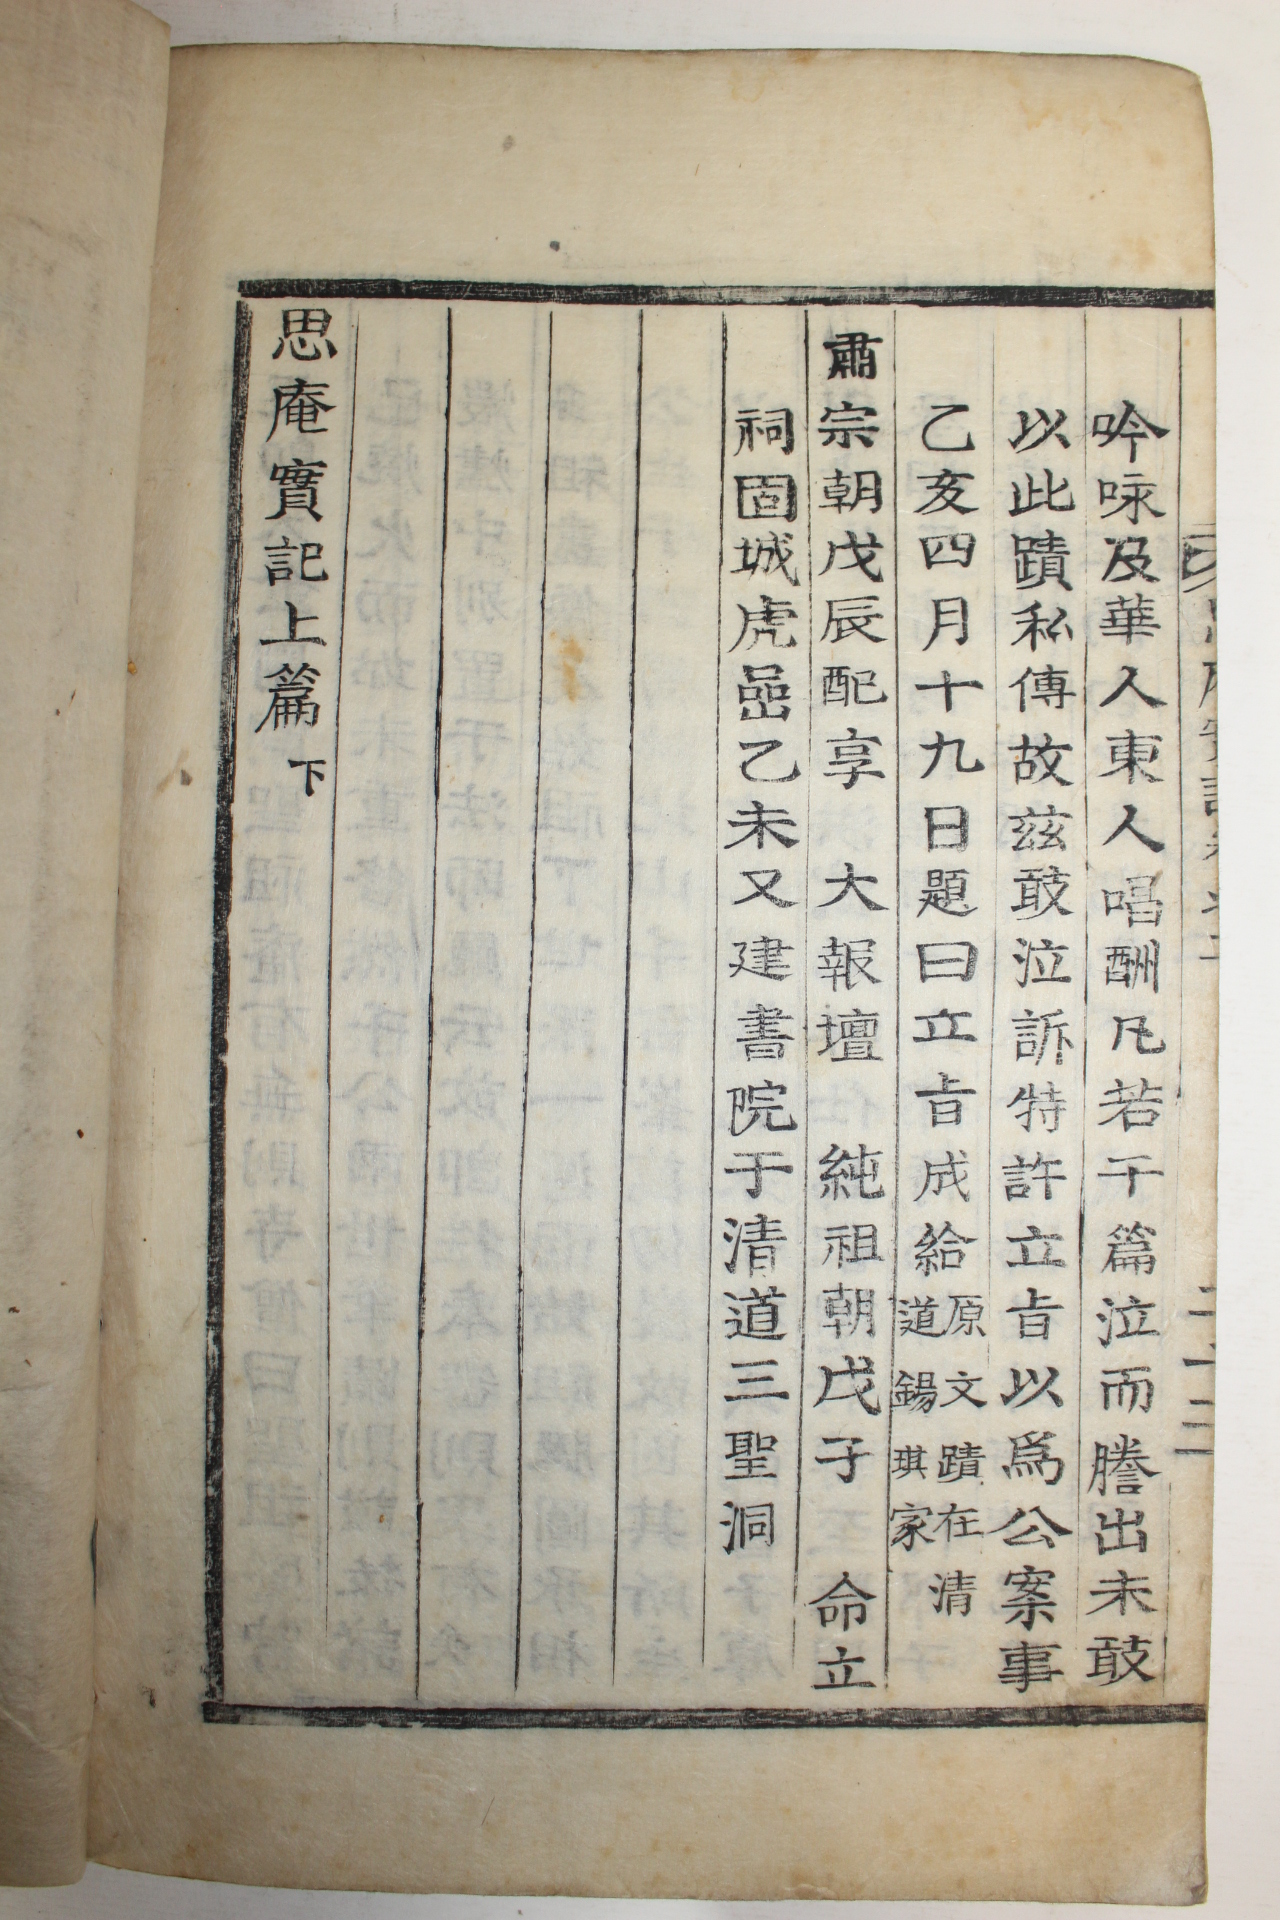 吟咏及華人東人唱酬凡若干篇泣而謄出未敢
以此蹟私傳故玆敢泣訴特許立旨以爲公案事
乙亥四月十九日題曰立旨成給原文蹟在清道錫琪家
肅宗朝戊辰配享 大報壇 純祖朝戊子 命立
祠固城虎嵒乙未又建書院于清道三聖洞
思庵實記上篇 下